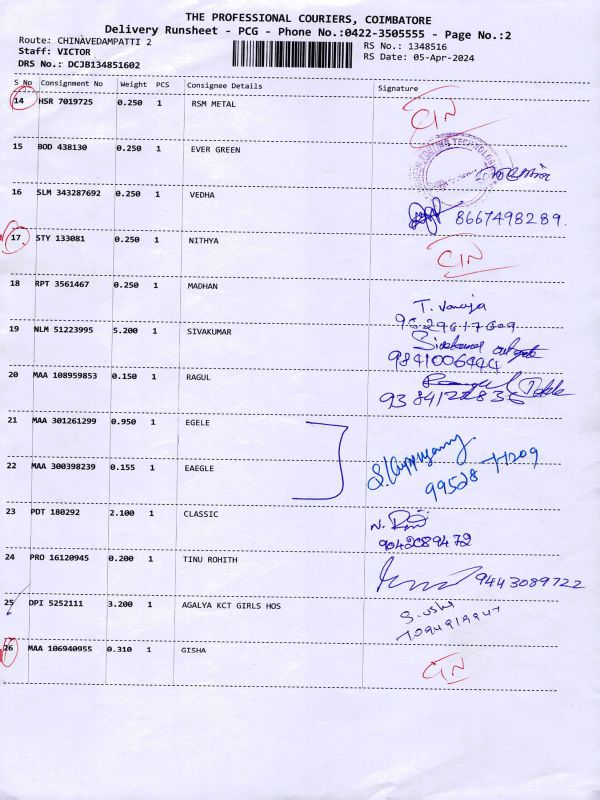 THE PROFESSIONAL COURIERS, COIMBATORE
Delivery Runsheet - PCG - Phone No.:0422-3505555 - Page No.:2
Route: CHINAVEDAMPATTI 2
RS No.: 1348516
Staff: VICTOR
RS Date: 05-Apr-2024
DRS No.: DCJB134851602
S No Consignment No Weight PCS Consignee Details Signature
14 HSR 7019725 0.250 1 RSM METAL
15 BOD 438130 0.250 1 EVER GREEN
16 SLM 343287692 0.250 1 VEDHA 8667498289.
17 STY 133081 0.250 1 NITHYA
18 RPT 3561467 0.250 1 MADHAN
T. Vanaja
9629617609
19 NLM 51223995 5.200 1 SIVAKUMAR
9841006444
20 MAA 108959853 0.150 1 RAGUL
21 MAA 301261299 0.950 1 EGELE
22 MAA 300398239 0.155 1 EAEGLE
99528 77209
23 PDT 180292 2.100 1 CLASSIC
9042089472
24 PRO 16120945 0.200 1 TINU ROHITH 9443089722
25 DPI 5252111 3.200 1 AGALYA KCT GIRLS HOS
S. usha
26 MAA 106940955 0.310 1 GISHA